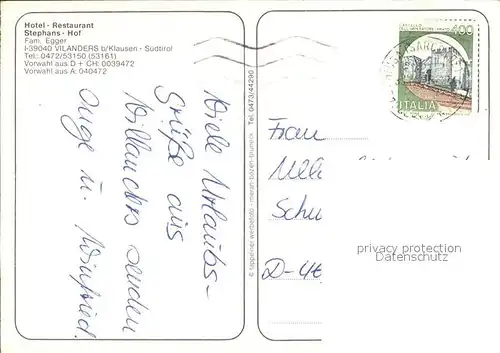 Hotel - Restaurant
Stephans - Hof
Fam. Egger
I-39040 VILANDERS b/Klausen - Südtirol
Tel.: 0472/53150 (53161)
Vorwahl aus D + CH: 0039472
Vorwahl aus A: 040472
Viele Urlaubs-
Grüße aus
Villanders senden
Inge u. Winfried.
Tel. 0473/44290
400
ITALIA
Frau
Schu
D-46
privacy protection
Datenschutz